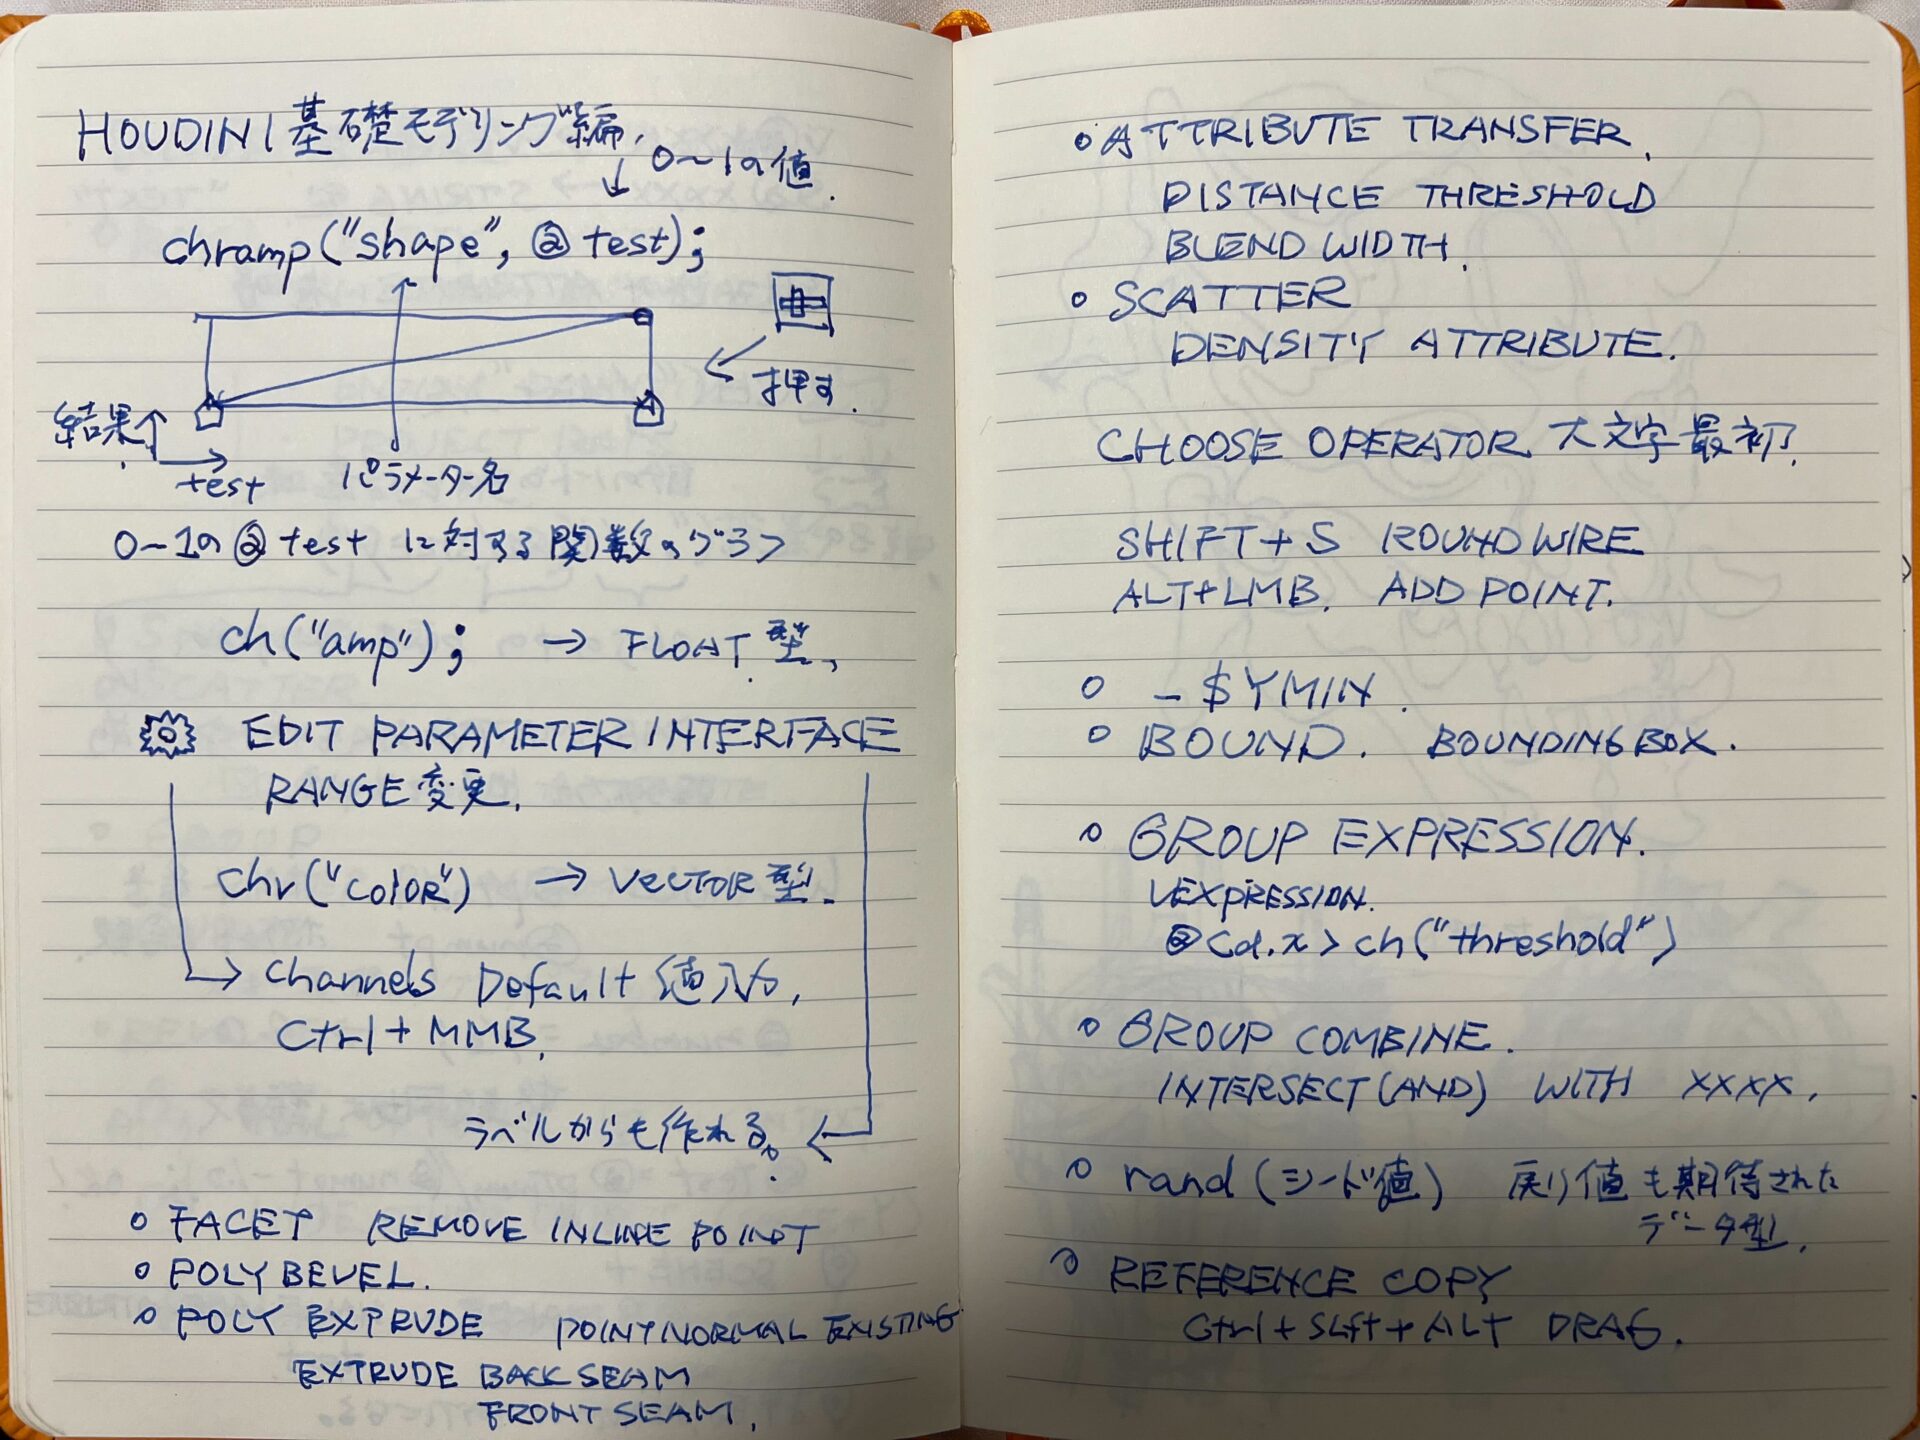 HOUDINI 基礎モデリング編.
0〜1の値.
chramp("shape", @test);
押す.
結果
test
パラメーター名
0〜1の@testに対する関数のグラフ
ch("amp"); → FLOAT型.
EDIT PARAMETER INTERFACE
RANGE変更.
chv("color") → VECTOR型.
Channels Default 値入力.
Ctrl+MMB.
ラベルからも作れる。
○ FACET REMOVE INLINE POINT
○ POLY BEVEL.
○ POLY EXPRUDE POINT NORMAL EXISTING
EXTRUDE BACK SEAM
FRONT SEAM.
○ ATTRIBUTE TRANSFER.
DISTANCE THRESHOLD
BLEND WIDTH.
○ SCATTER
DENSITY ATTRIBUTE.
CHOOSE OPERATOR 大文字最初.
SHIFT+S ROUND WIRE
ALT+LMB. ADD POINT.
○ -$YMIN.
○ BOUND. BOUNDING BOX.
○ GROUP EXPRESSION.
VEXPRESSION.
@Cd.x > ch("threshold")
○ GROUP COMBINE.
INTERSECT(AND) WITH XXXX.
○ rand(シード値) 戻り値も期待された
データ型.
○ REFERENCE COPY
Ctrl+Sift+ALT DRAG.